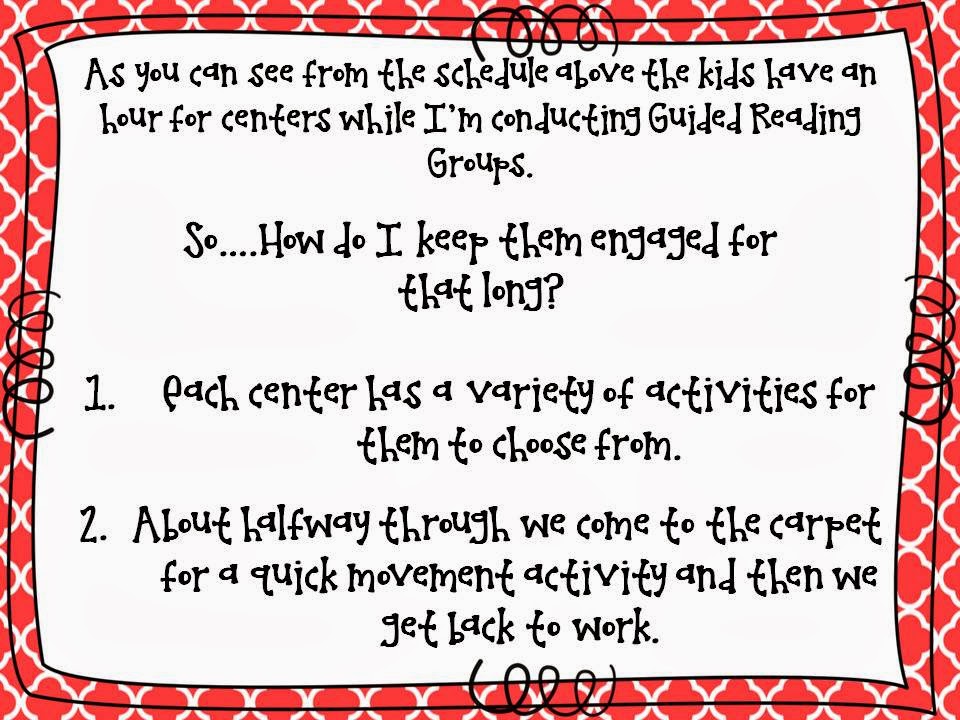 As you can see from the schedule above the kids have an
hour for centers while I'm conducting Guided Reading
Groups.
So....How do I keep them engaged for
that long?
1. Each center has a variety of activities for
them to choose from.
2. About halfway through we come to the carpet
for a quick movement activity and then we
get back to work.